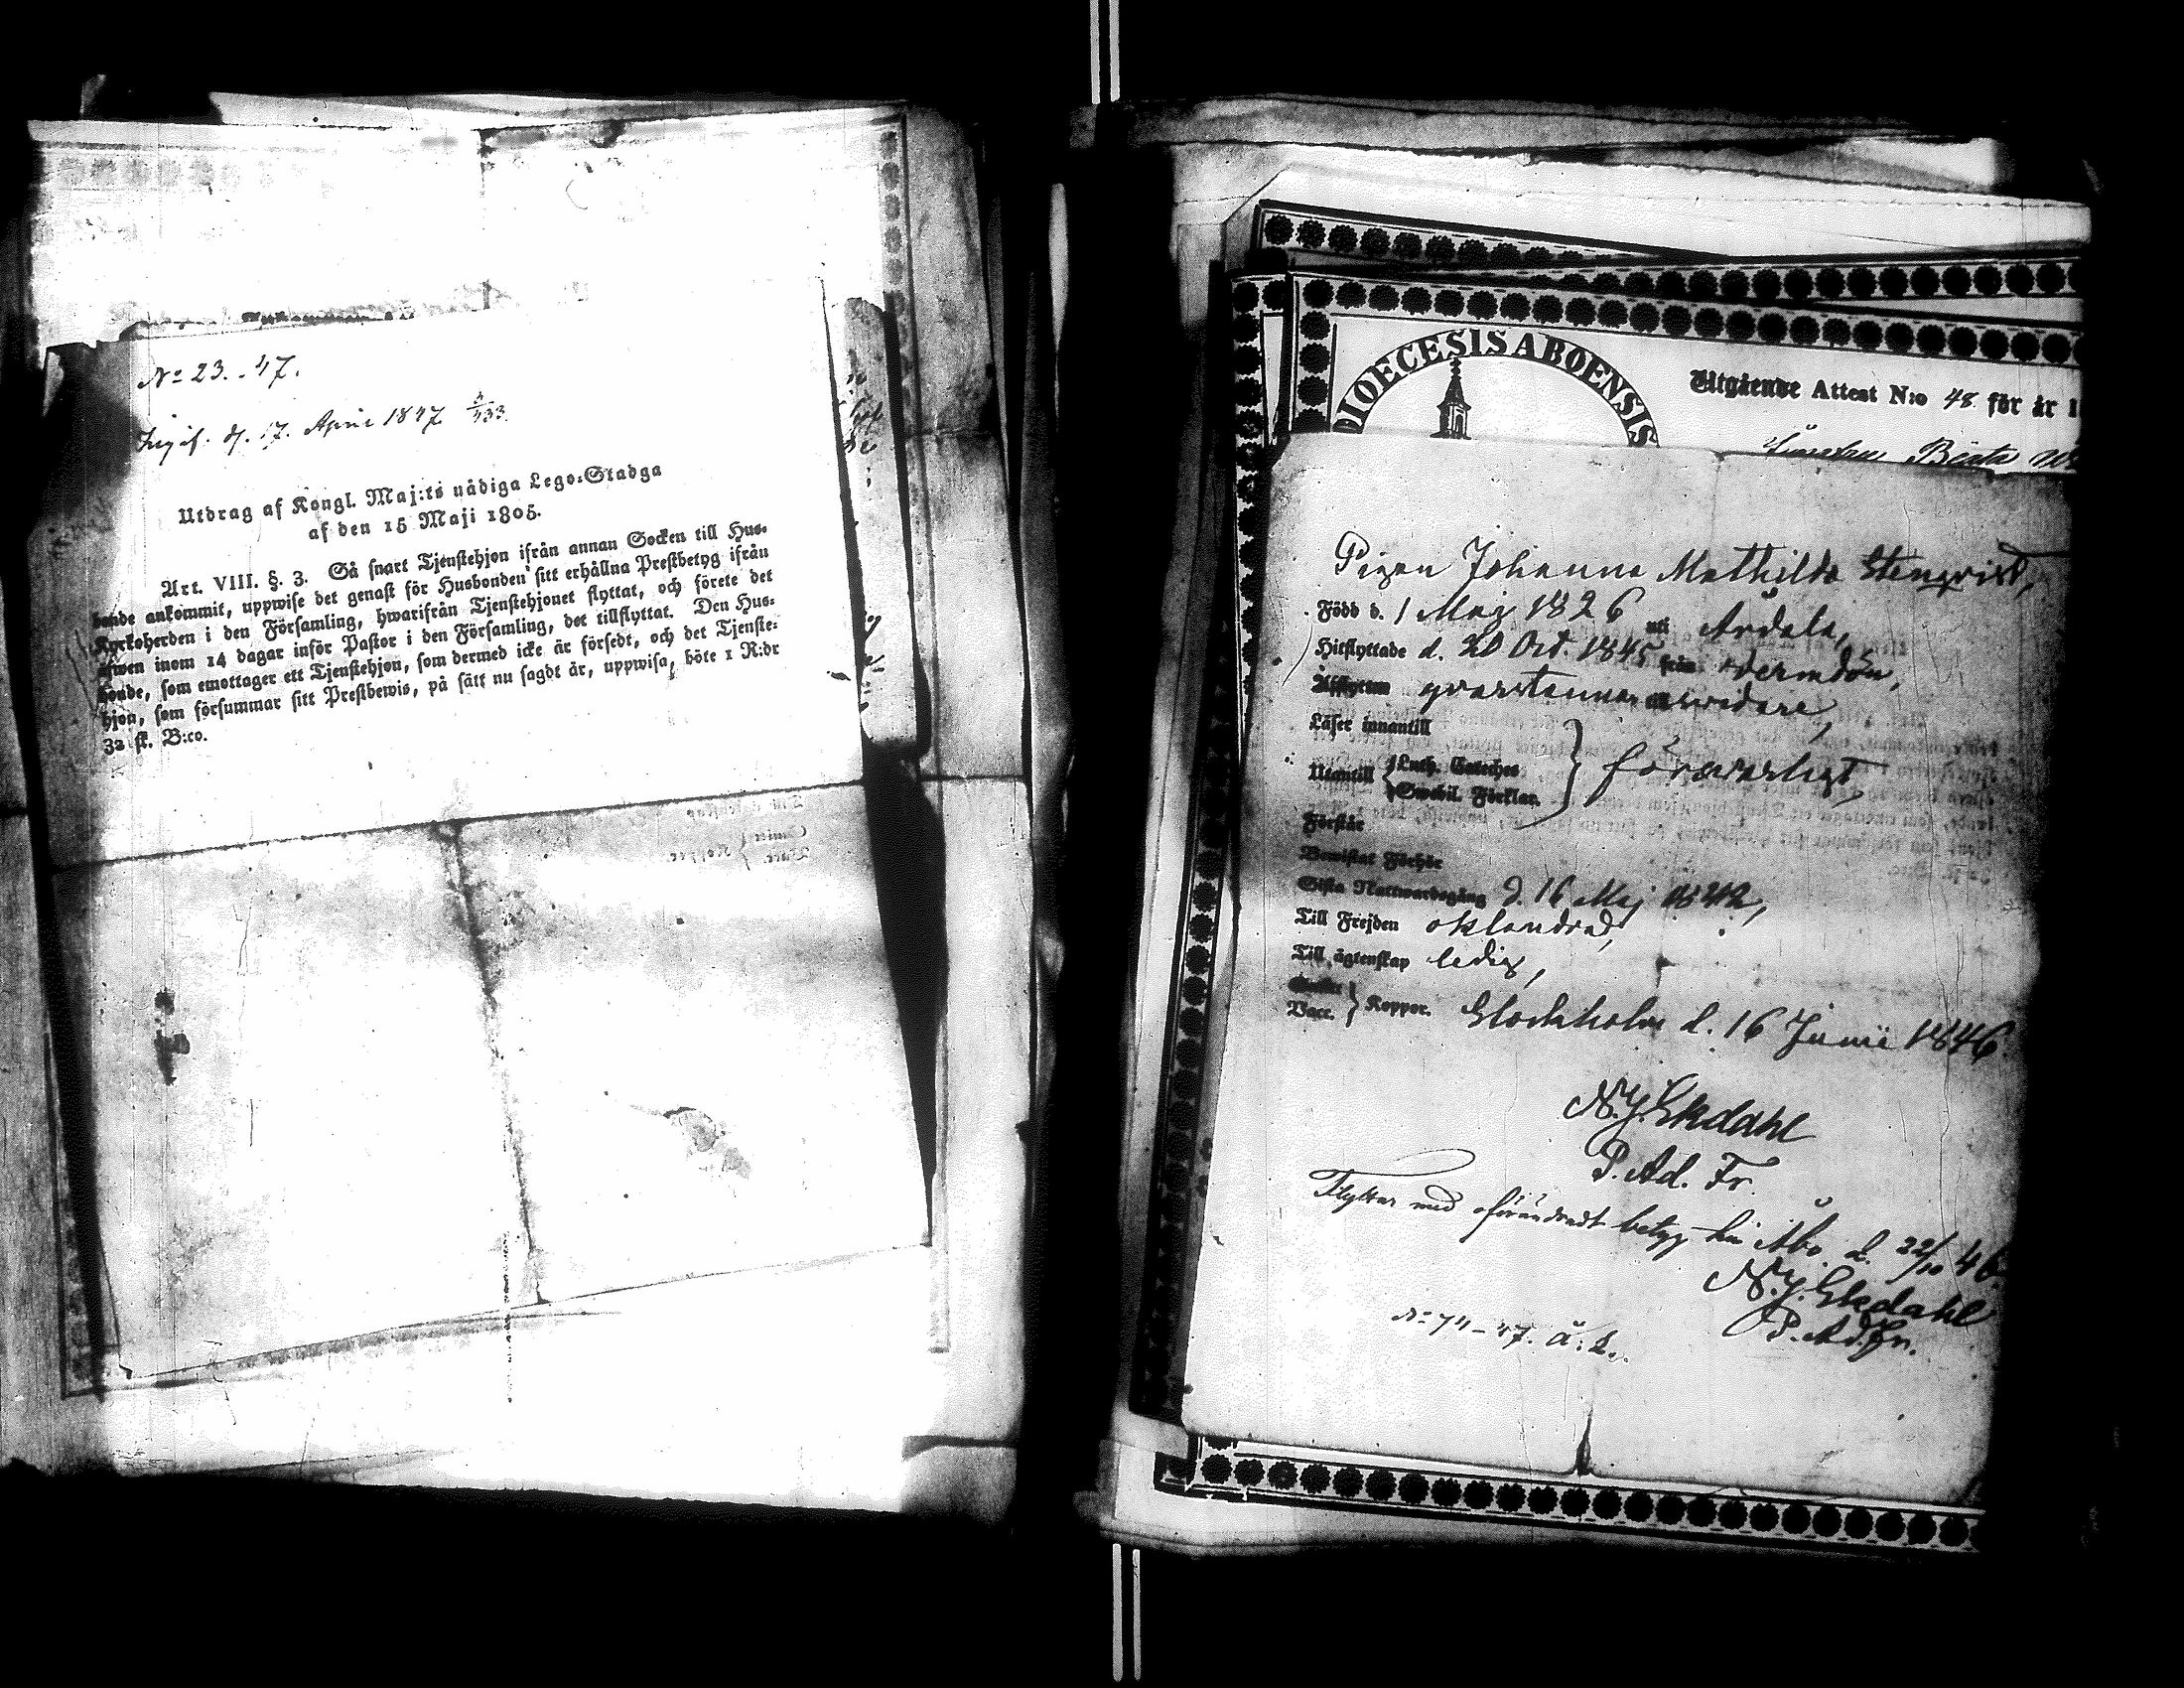 No 23. -47.
Ingif. d. 17. April 1847 3/433.
Utdrag af Kongl. Maj:ts nådiga Lego-Stadga
af den 15 Maji 1805.
Art. VIII. §. 3. Så snart Tjenstehjon ifrån annan Socken till Hus-
bonde ankommit, uppwise det genast för Husbonden sitt erhållna Prestbetyg ifrån
Kyrkoherden i den Församling, hwarifrån Tjenstehjonet flyttat, och förete det
äfwen inom 14 dagar inför Pastor i den Församling, det tillflyttat. Den Hus-
bonde, som emottager ett Tjenstehjon, som dermed icke är försedt, och det Tjenste-
hjon, som försummar sitt Prestbewis, på sätt nu sagdt är, uppwisa, böte 1 R:dr
32 sk. B:co.
DIOECESIS ABOENSIS
Utgående Attest N:o 48 för år 1
Beata
Pigan Johanna Mathilda Stenqvist,
Född d. 1 Maj 1826 uti Årdala,
Hitflyttade d. 20 Oct. 1845 från Wermdön,
Afflyttar qvarstannar tillsvidare,
Läser innantill
Utantill { Luth. Cateches
Swebil. Förklar. } försvarligt,
Förstår
Bewistat Förhör
Sista Nattwardsgång d. 16 Maj
Till Frejden oklandrad,
Till ägtenskap ledig,
Vacc. } Koppor. Stockholm d. 16 Junii 1846
N.J. Ekdahl
P. Ad. Fr.
Flyttar med oförändradt betyg till Åbo d. 22/10 46.
N.J. Ekdahl
P. Ad. Fr.
No 74-47. å. l.